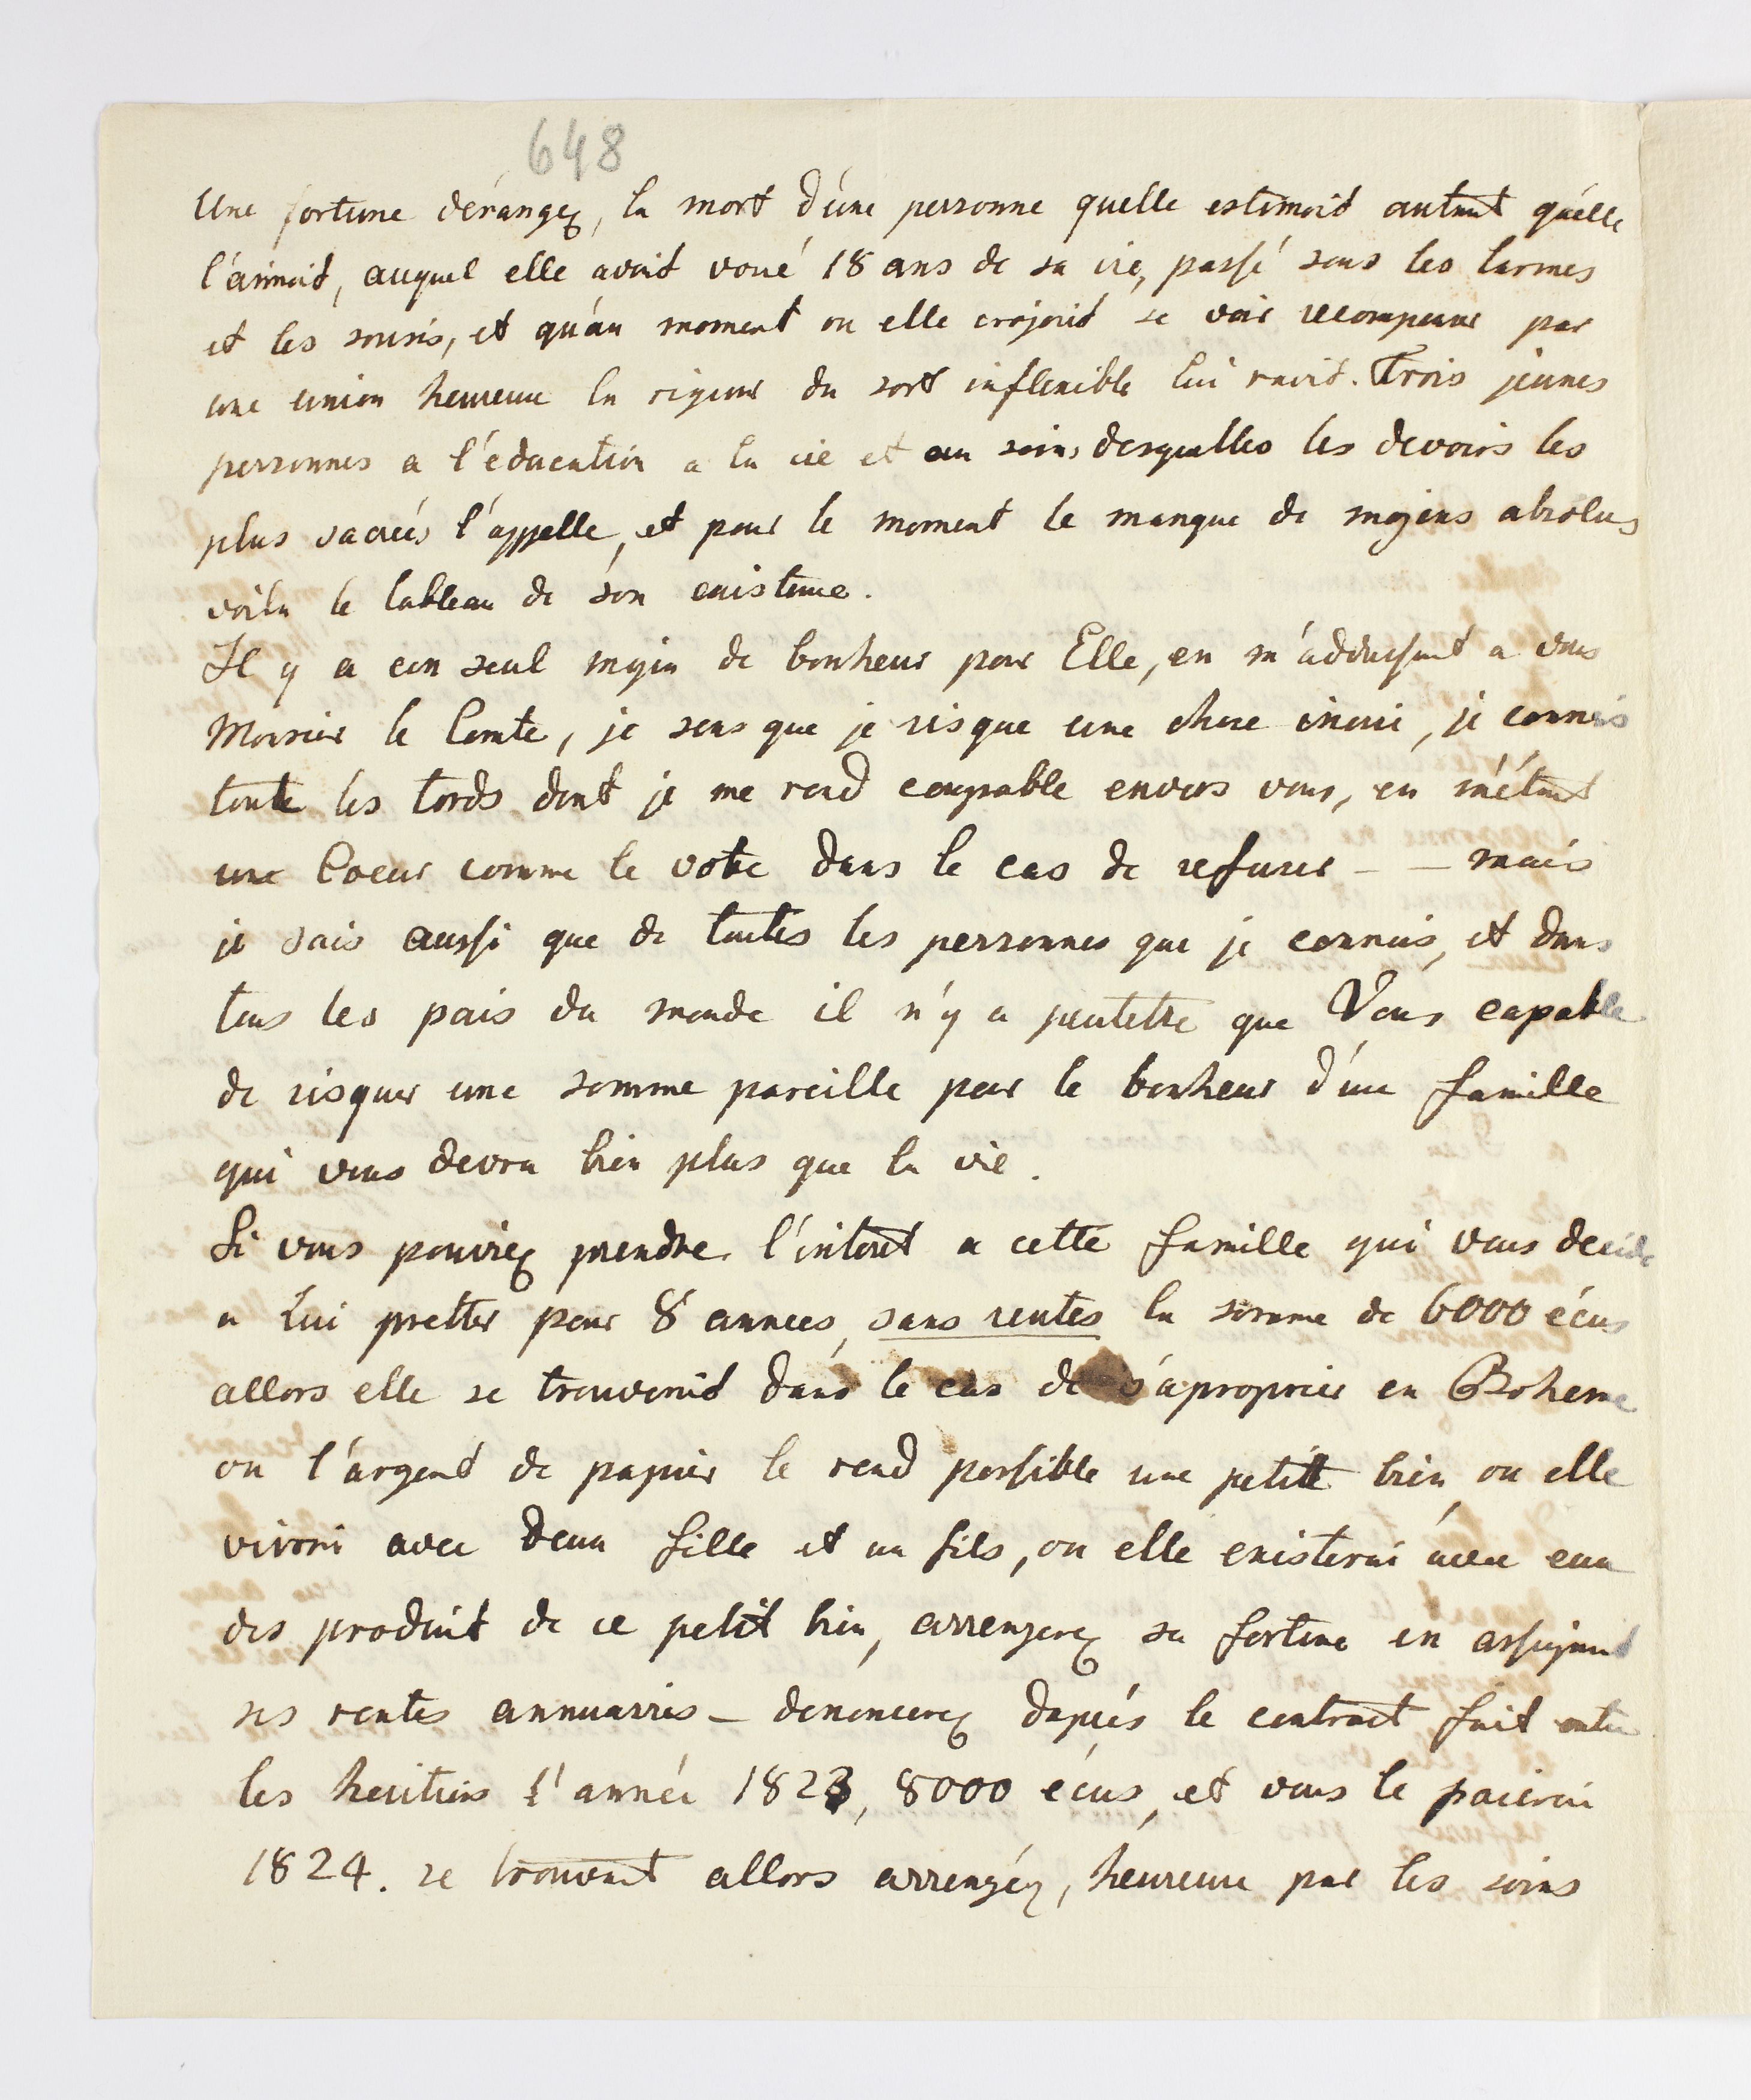 648
Une fortune derangez, la mort d'une personne quelle estimoit autant qu'elle
l'aimoit, auquel elle avoit voué 18 ans de sa vie, passé sous les larmes
et les soucis, et qu'au moment ou elle crojoit se voir recompenser par
une union heureuse la rigeur du sort inflexible lui ravit. Trois jeunes
personnes a l'éducation a la vie et au soins desquelles les devoirs les
plus sacrés l'appelle, et pour le moment le manque de mojens absolus
voila le tableau de son existence.
Il y a un seul mojen de bonheur pour Elle, en m'addressant a vous
Monsieur le Comte, je sens que je risque une chose inoui, je connois
toute les tords dont je me rend coupable envers vous, en m'étant
une Coeur comme le votre dans le cas de refuser – – mais
je sais aussi que de toutes les personnes que je connois, et dans
tous les pais du monde il n'y a peutetre que Vous capable
de risquer une somme pareille pour le bonheur d'une famille
qui vous devra bien plus que la vie.
Si vous pouviez prendre l'interet a cette famille qui vous decide
a Lui pretter pour 8 annees, sans rentes la somme de 6000 écus
allors elle se trouveroit dans le cas de s'aproprier en Boheme
ou l'argend de papier le rend possible une petite bien, ou elle
vivroi avec deux fille et un fils, ou elle existerai avec eux
des produit de ce petit bien, arrengerez sa fortune en assignant
ses rentes annuarries – denoncerez dapués le contract fait entre
les heritiers l'année 1823, 8000 écus, et vous le paierai
1824. se trouvent allors arrengéz, heureuse par les soins